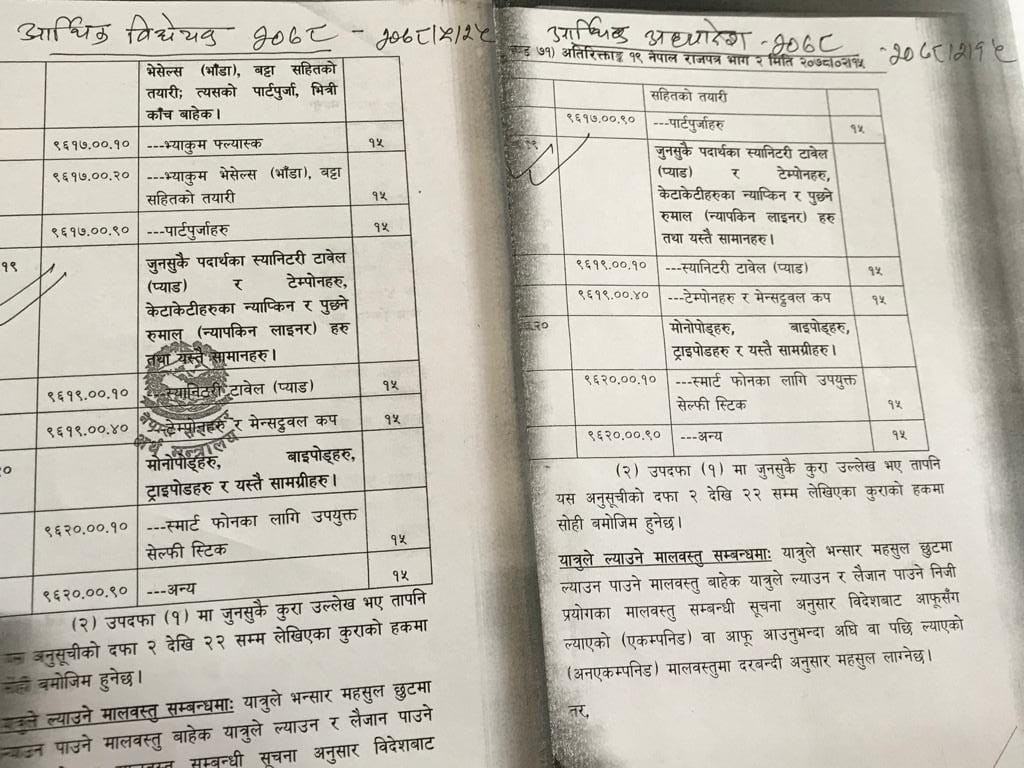 आर्थिक विधेयक २०७८ - २०७८/५/२५
भेसेल्स (भाँडा), बट्टा सहितको
तयारी; त्यसको पार्टपुर्जा, भित्री
काँच बाहेक।
९६१७.००.१० ---भ्याकुम फ्ल्यास्क १५
९६१७.००.२० ---भ्याकुम भेसेल्स (भाँडा), बट्टा
सहितको तयारी १५
९६१७.००.९० ---पार्टपुर्जाहरु १५
१९ जुनसुकै पदार्थका स्यानिटरी टावेल
(प्याड) र टेम्पोनहरु,
केटाकेटीहरुका न्याप्किन र पुछ्ने
रुमाल (न्यापकिन लाइनर) हरु
तथा यस्तै सामानहरु।
९६१९.००.१० ---स्यानिटरी टावेल (प्याड) १५
९६१९.००.४० ---टेम्पोनहरु र मेन्सट्रुवल कप १५
मोनोपोड्हरु, बाइपोड्हरु,
ट्राइपोडहरु र यस्तै सामग्रीहरु।
९६२०.००.१० ---स्मार्ट फोनका लागि उपयुक्त
सेल्फी स्टिक १५
९६२०.००.९० ---अन्य १५
(२) उपदफा (१) मा जुनसुकै कुरा उल्लेख भए तापनि
अनुसूचीको दफा २ देखि २२ सम्म लेखिएका कुराको हकमा
सोही बमोजिम हुनेछ।
यात्रुले ल्याउने मालवस्तु सम्बन्धमाः यात्रुले भन्सार महसुल छुटमा
ल्याउन पाउने मालवस्तु बाहेक यात्रुले ल्याउन र लैजान पाउने
मालवस्तु सम्बन्धी सूचना अनुसार विदेशबाट
आर्थिक अध्यादेश - २०७८ - २०७८/२/१५
७१) अतिरिक्ताङ्क १९ नेपाल राजपत्र भाग २ मिति २०७८।०२।१५
सहितको तयारी
९६१७.००.९० ---पार्टपुर्जाहरु १५
जुनसुकै पदार्थका स्यानिटरी टावेल
(प्याड) र टेम्पोनहरु,
केटाकेटीहरुका न्याप्किन र पुछ्ने
रुमाल (न्यापकिन लाइनर) हरु
तथा यस्तै सामानहरु।
९६१९.००.१० ---स्यानिटरी टावेल (प्याड) १५
९६१९.००.४० ---टेम्पोनहरु र मेन्सट्रुवल कप १५
.२० मोनोपोड्हरु, बाइपोड्हरु,
ट्राइपोडहरु र यस्तै सामग्रीहरु।
९६२०.००.१० ---स्मार्ट फोनका लागि उपयुक्त
सेल्फी स्टिक १५
९६२०.००.९० ---अन्य १५
(२) उपदफा (१) मा जुनसुकै कुरा उल्लेख भए तापनि
यस अनुसूचीको दफा २ देखि २२ सम्म लेखिएका कुराको हकमा
सोही बमोजिम हुनेछ।
यात्रुले ल्याउने मालवस्तु सम्बन्धमाः यात्रुले भन्सार महसुल छुटमा
ल्याउन पाउने मालवस्तु बाहेक यात्रुले ल्याउन र लैजान पाउने निजी
प्रयोगका मालवस्तु सम्बन्धी सूचना अनुसार विदेशबाट आफूसँग
ल्याएको (एकम्पनिड) वा आफू आउनुभन्दा अघि वा पछि ल्याएको
(अनएकम्पनिड) मालवस्तुमा दरबन्दी अनुसार महसुल लाग्नेछ।
तर,